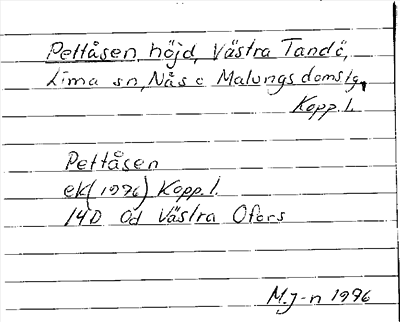 Pettåsen, höjd, Västra Tandö,
Lima sn, Nås o Malungs domslg,
Kopp. l.
Pettåsen
ek (1996) Kopp. l.
14D 0d Västra Ofors
M.J-n 1996